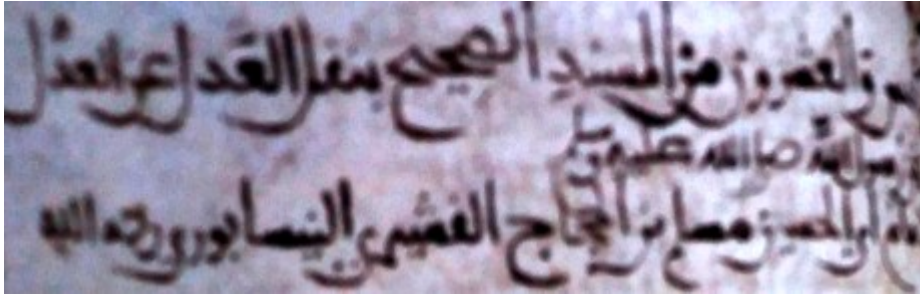 والعشرون من المسند الصحيح بنقل العدل عن العدل
رسول الله صلى الله عليه وسلم
أبي الحسين مسلم بن الحجاج القشيري النيسابوري رحمه الله